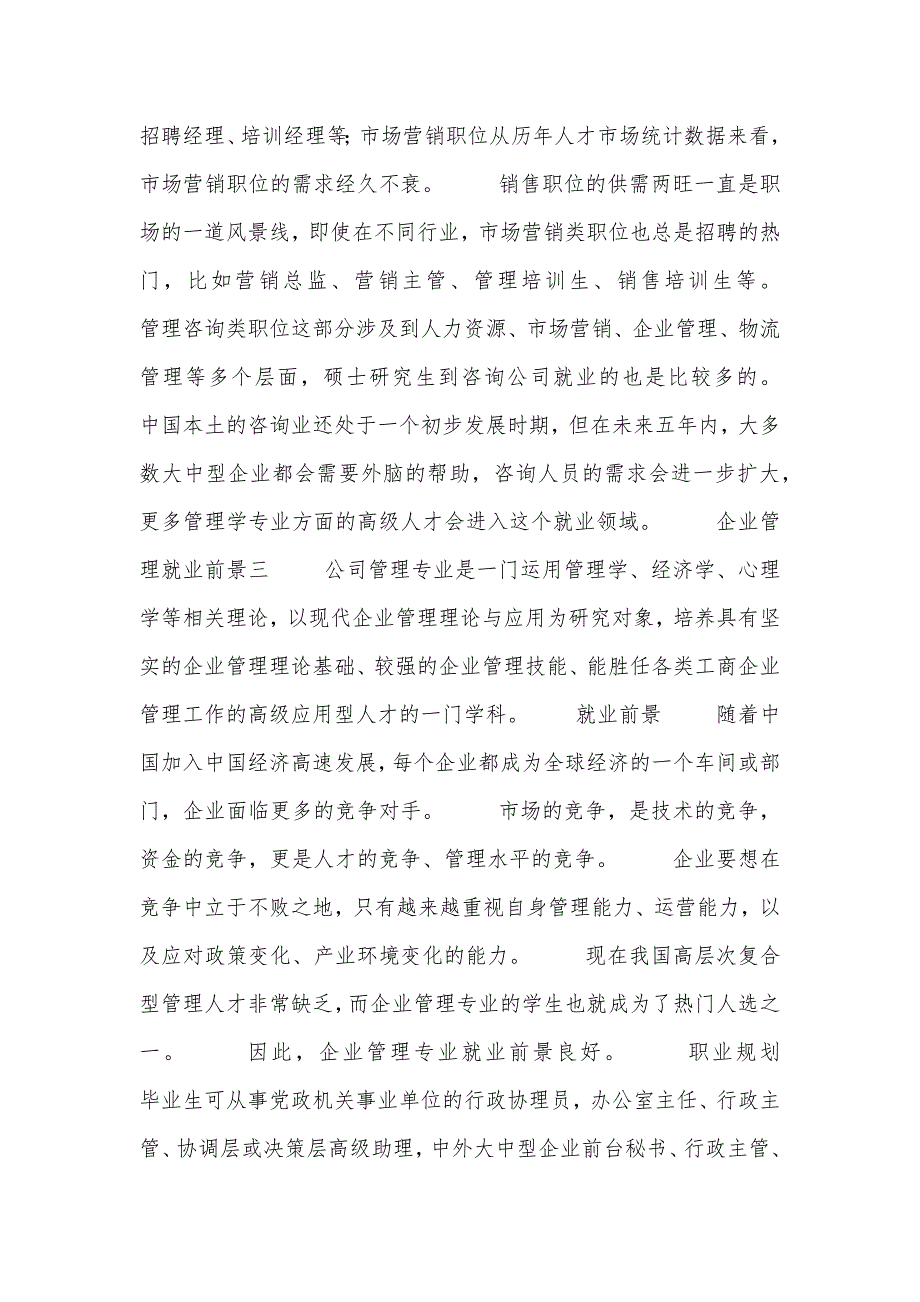 招聘经理、培训经理等; 市场营销职位从历年人才市场统计数据来看，
市场营销职位的需求经久不衰。 销售职位的供需两旺一直是职
场的一道风景线，即使在不同行业，市场营销类职位也总是招聘的热
门，比如营销总监、营销主管、管理培训生、销售培训生等。
管理咨询类职位这部分涉及到人力资源、市场营销、企业管理、物流
管理等多个层面，硕士研究生到咨询公司就业的也是比较多的。
中国本土的咨询业还处于一个初步发展时期，但在未来五年内，大多
数大中型企业都会需要外脑的帮助，咨询人员的需求会进一步扩大，
更多管理学专业方面的高级人才会进入这个就业领域。 企业管
理就业前景三 公司管理专业是一门运用管理学、经济学、心理
学等相关理论，以现代企业管理理论与应用为研究对象，培养具有坚
实的企业管理理论基础、较强的企业管理技能、能胜任各类工商企业
管理工作的高级应用型人才的一门学科。 就业前景 随着中
国加入中国经济高速发展，每个企业都成为全球经济的一个车间或部
门，企业面临更多的竞争对手。 市场的竞争，是技术的竞争，
资金的竞争，更是人才的竞争、管理水平的竞争。 企业要想在
竞争中立于不败之地，只有越来越重视自身管理能力、运营能力，以
及应对政策变化、产业环境变化的能力。 现在我国高层次复合
型管理人才非常缺乏，而企业管理专业的学生也就成为了热门人选之
一。 因此，企业管理专业就业前景良好。 职业规划
毕业生可从事党政机关事业单位的行政协理员，办公室主任、行政主
管、协调层或决策层高级助理，中外大中型企业前台秘书、行政主管、